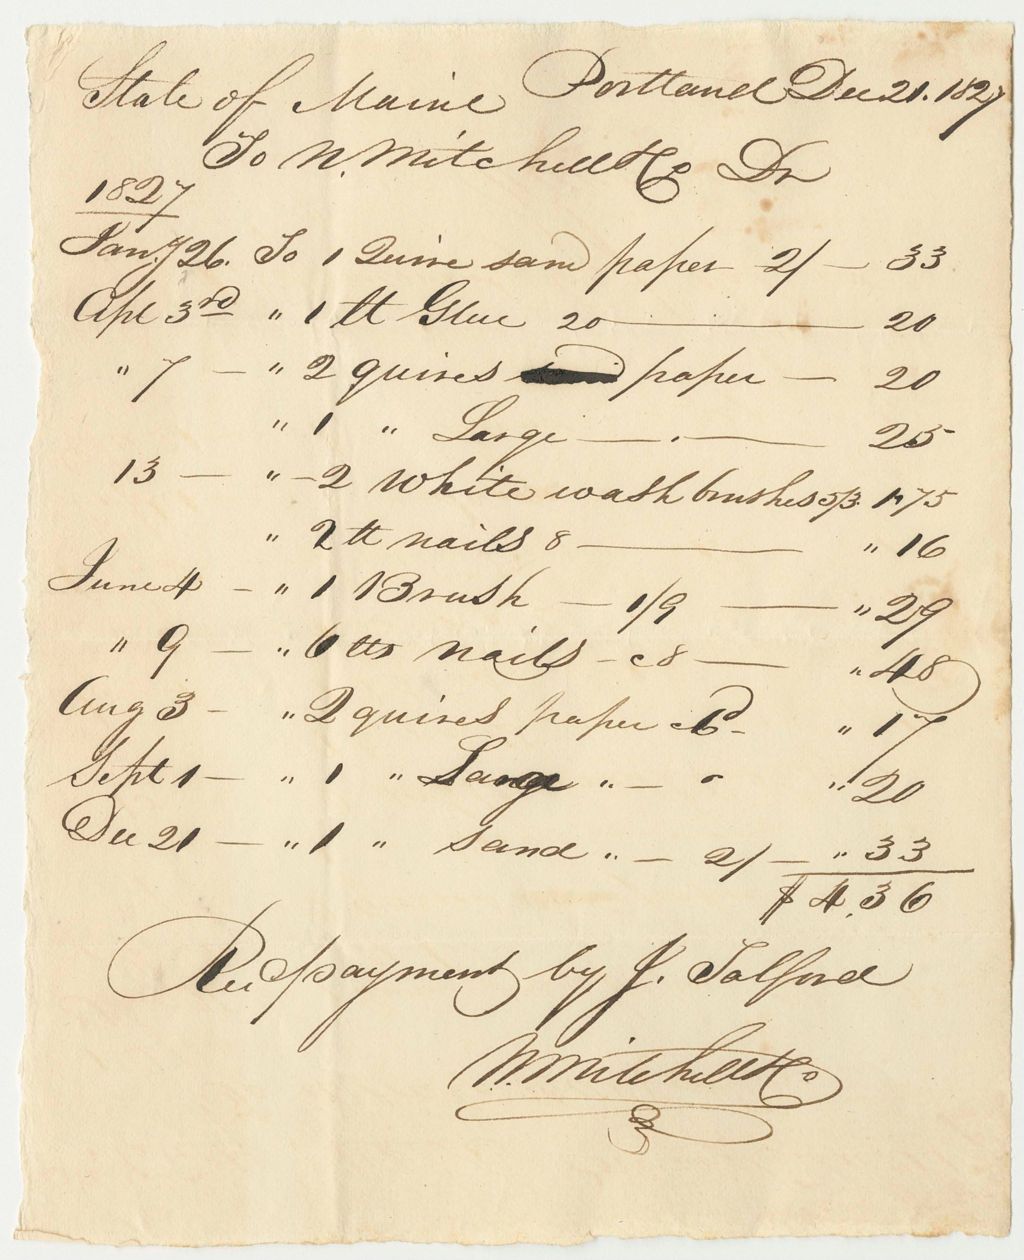 State of Maine Portland Dec 21. 1827
To N. Mitchell & Co Dr
1827
Jany 26. To 1 Quire sand paper 2/ — 33
Apl 3rd " 1 lb Glue 20 — 20
" 7 — " 2 quires paper — 20
" 1 " Large — 25
13 — " 2 White wash brushes 5/3 1"75
" 2 lb nails 8 — " 16
June 4 — " 1 Brush — 1/9 — " 29
" 9 — " 6 lbs nails - c8 — " 48
Aug 3 - " 2 quires paper — " 17
Sept 1 — " 1 " Large " — " 20
Dec 21 — " 1 " sand " — 2/ — " 33
$ 4.36
Rec payment by J. Talford
N. Mitchell & Co